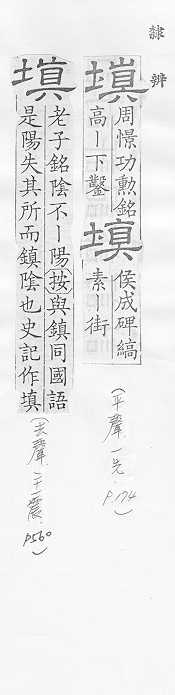 隸辨
填周憬功勳銘
高丨下鑿填候成碑縞
素丨街
(平聲 一先 P.174)
填老子銘陰不丨陽按與鎮同國語
是陽失其所而鎮陰也史記作填
(去聲 二十一震 P560)